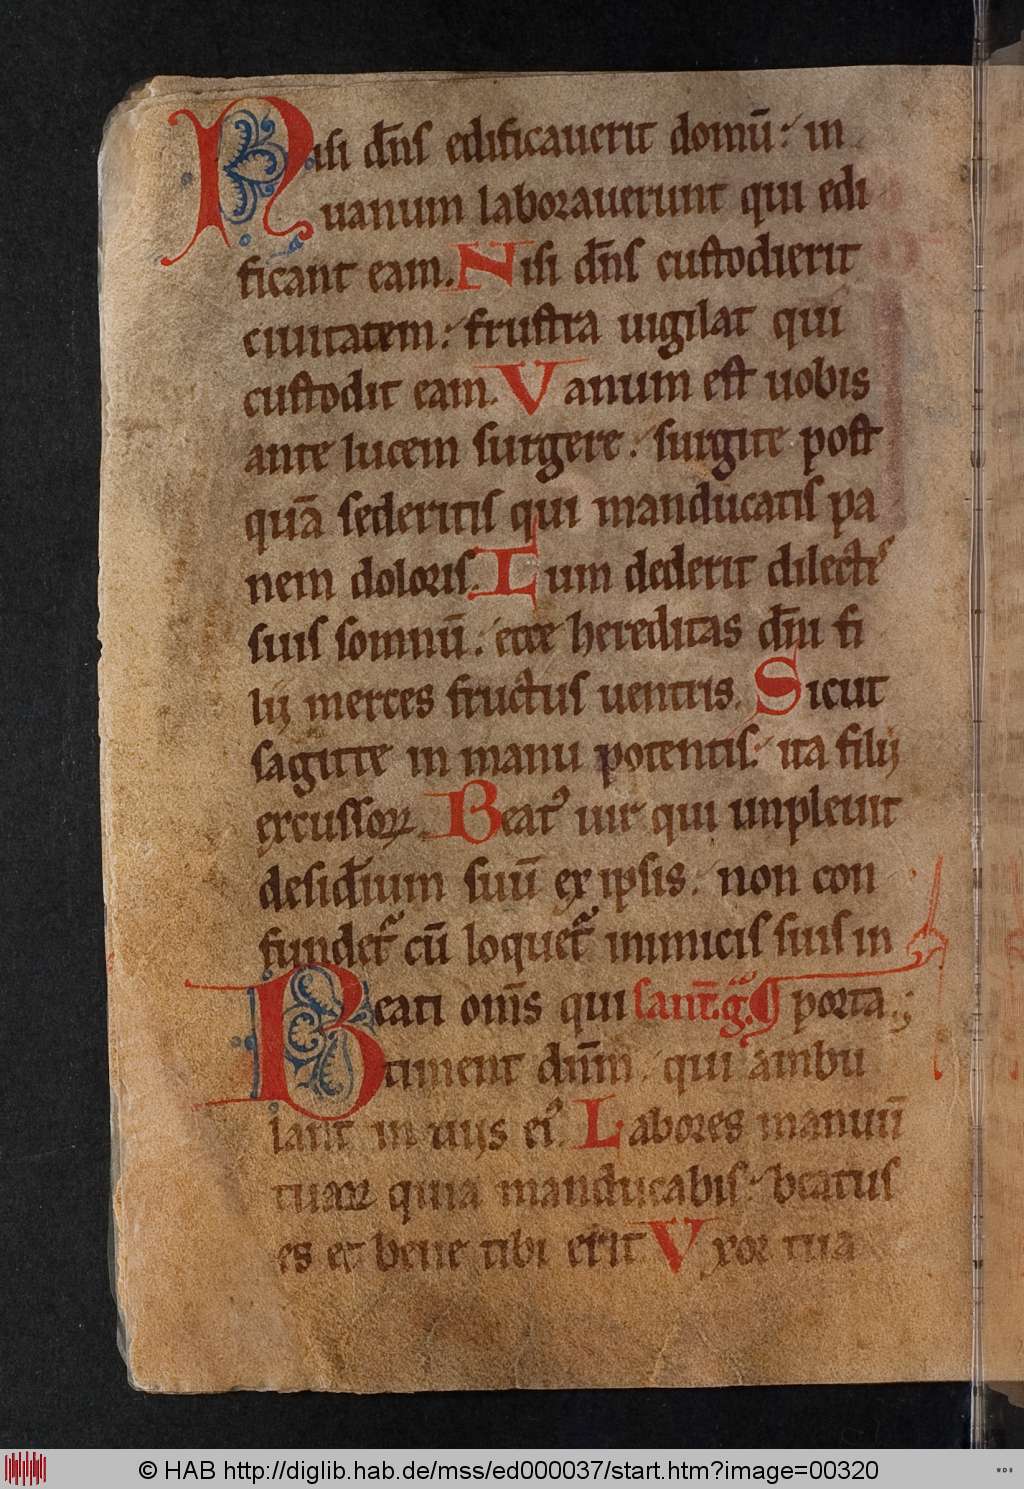 Nisi dn̄s edificauerit domū: in
uanum laborauerunt qui edi
ficant eam. Nisi dn̄s custodierit
ciuitatem: frustra uigilat qui
custodit eam. Vanum est uobis
ante lucem surgere: surgite post
quā sederitis qui manducatis pa
nem doloris. Cum dederit dilectis
suis somnū: ecce hereditas dn̄i fi
lij merces fructus uentris. Sicut
sagitte in manu potentis: ita filij
excussoꝝ. Beatꝰ uir qui impleuit
desid̄ium suū ex ipsis: non con
fundet᷑ cū loquet᷑ inimicis suis in
Beati om̄s qui sant̄. gᷓ. ¶ porta.;
timent dn̄m: qui ambu
lant in uijs eiꝰ. Labores manuū
tuaꝝ quia manducabis: beatus
es et bene tibi erit Vxor tua
© HAB http://diglib.hab.de/mss/ed000037/start.htm?image=00320